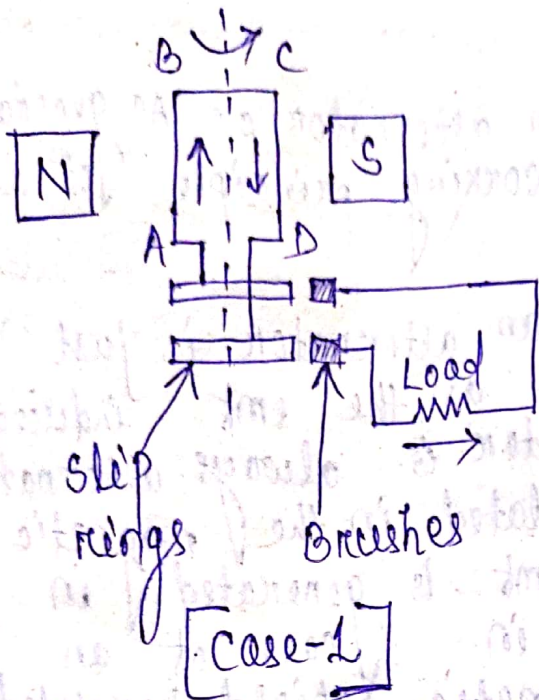 B C
N S
A D
Load
Slip
rings
Brushes
Case-1